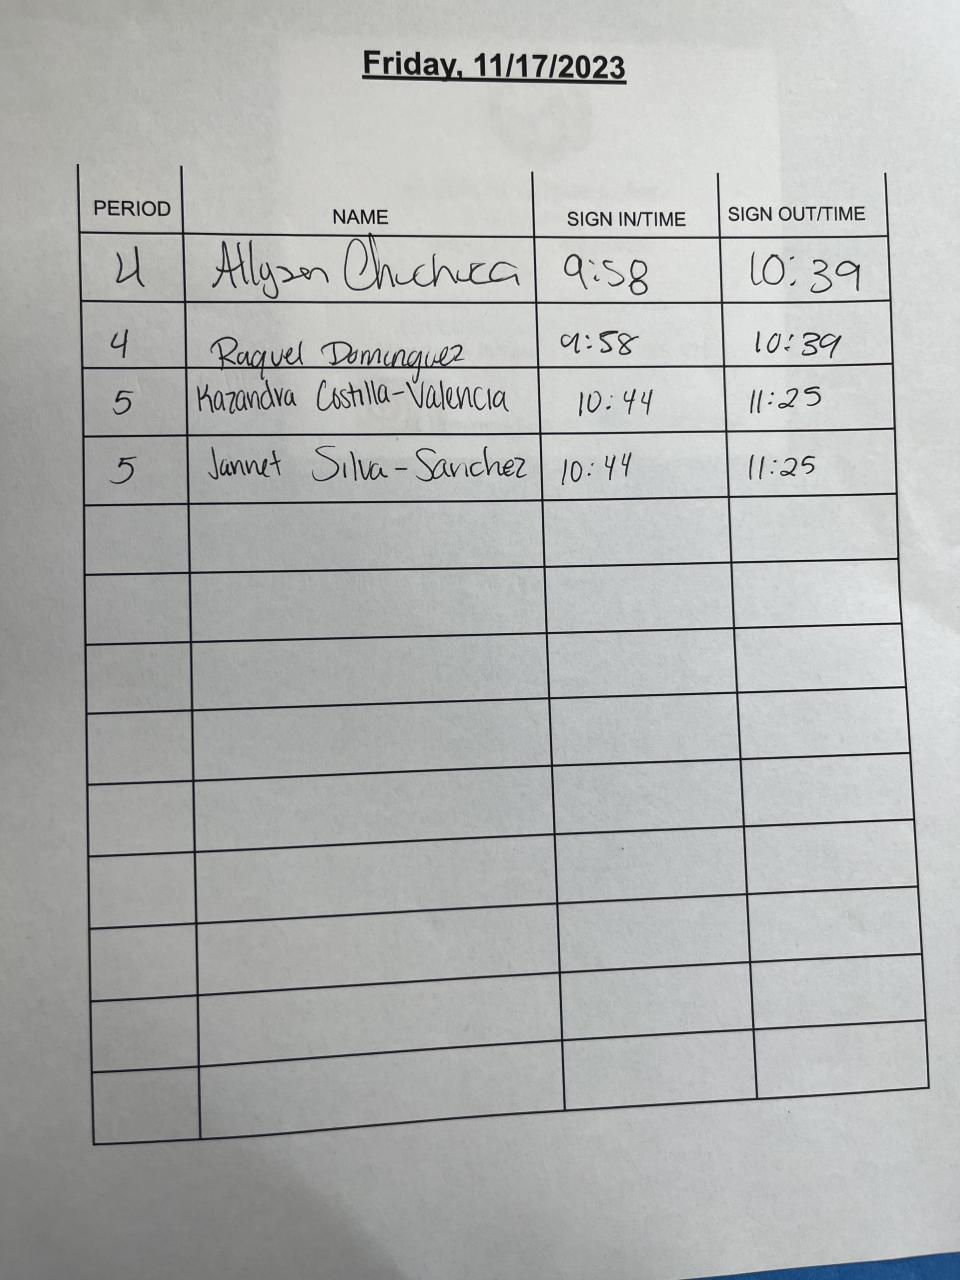 Friday, 11/17/2023
PERIOD NAME SIGN IN/TIME SIGN OUT/TIME
4 Allyson Chichica 9:58 10:39
4 Raquel Dominguez 9:58 10:39
5 Kazandra Costilla-Valencia 10:44 11:25
5 Jannet Silva-Sanchez 10:44 11:25